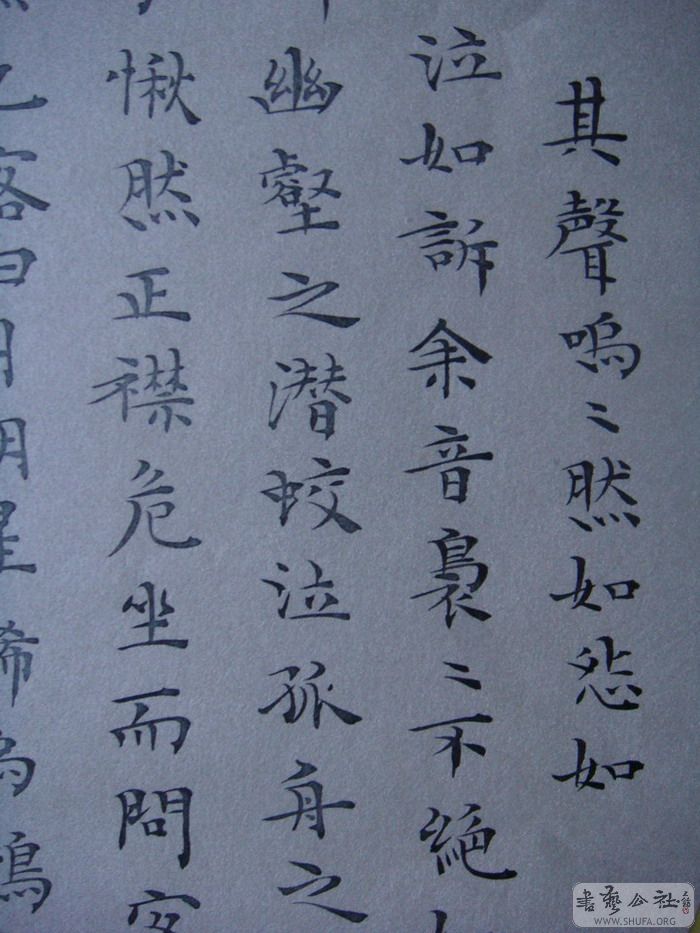 其聲嗚〻然如怨如
泣如訴余音裊〻不絕
幽壑之潛蛟泣孤舟之
愀然正襟危坐而問客
客曰月明星稀烏鵲
書藝公社
WWW.SHUFA.ORG